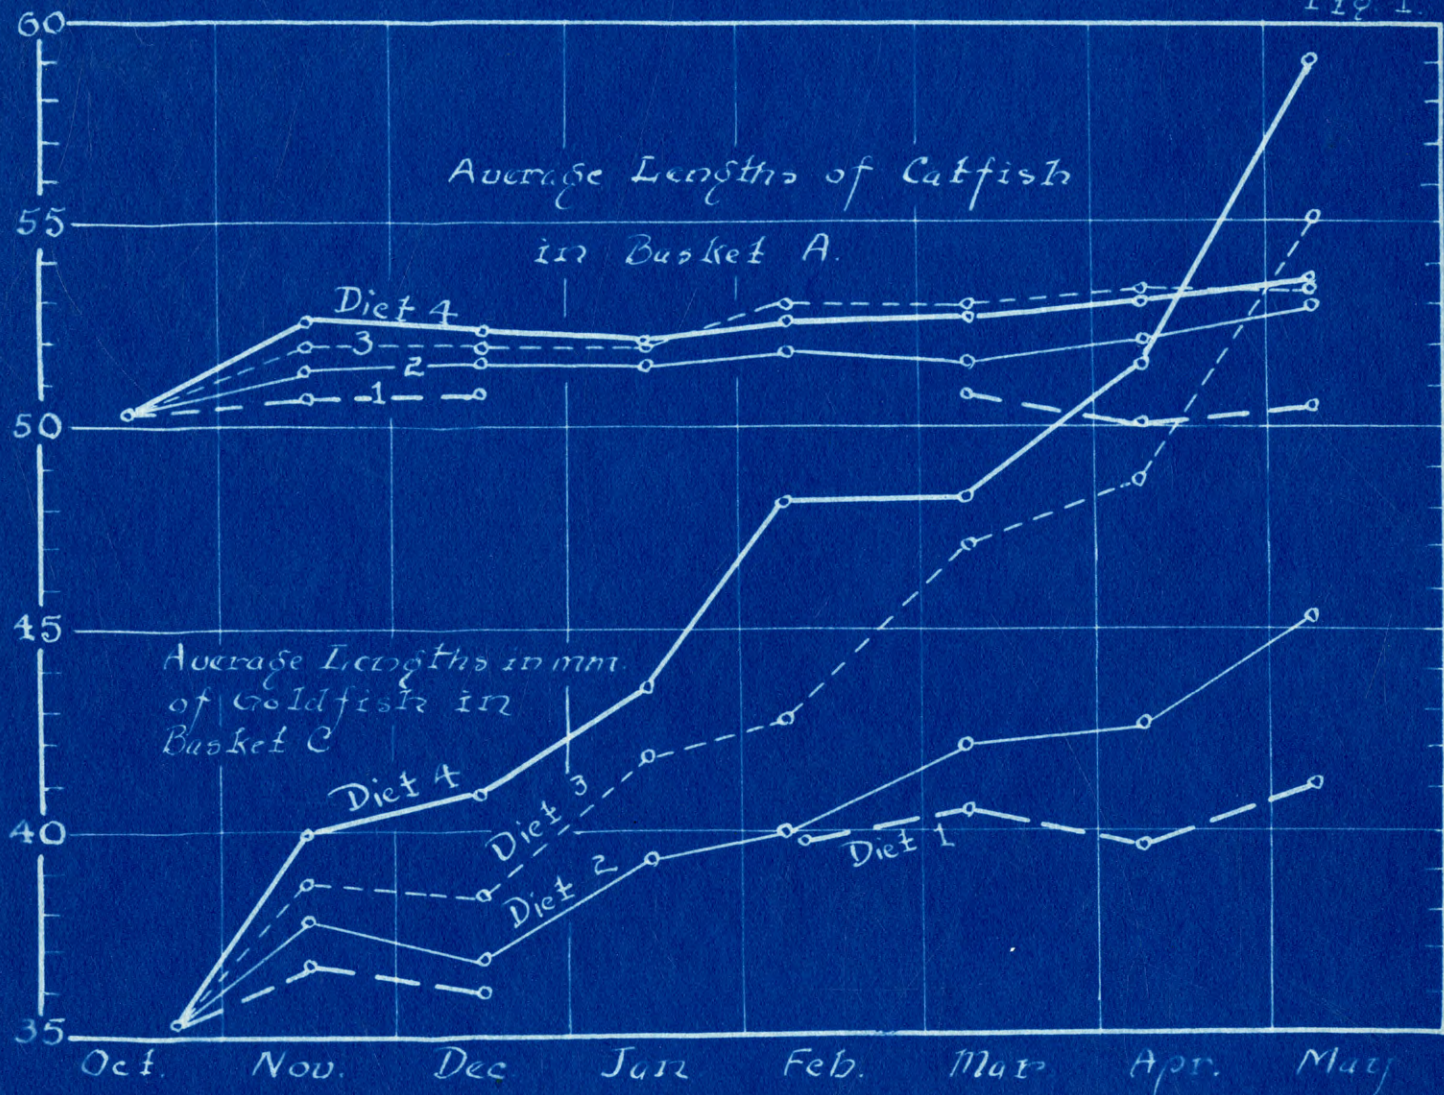 Fig. 1.
60
Average Lengths of Catfish
55
in Basket A.
Diet 4
3
2
1
50
45
Average Lengths in mm.
of Goldfish in
Basket C
Diet 4
Diet 3
40
Diet 1
Diet 2
35
Oct. Nov. Dec Jan Feb. Mar Apr. May